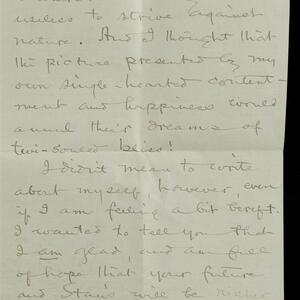 useless to strive against
nature. And I thought that
the picture presented by my
own single-hearted content-
ment and happiness would
annul their dreams of
two-souled bliss!
I didn't mean to write
about myself however even
if I am feeling a bit bereft.
I wanted to tell you that
I am glad, and am full
of hope that your future
and Stan's will be richer